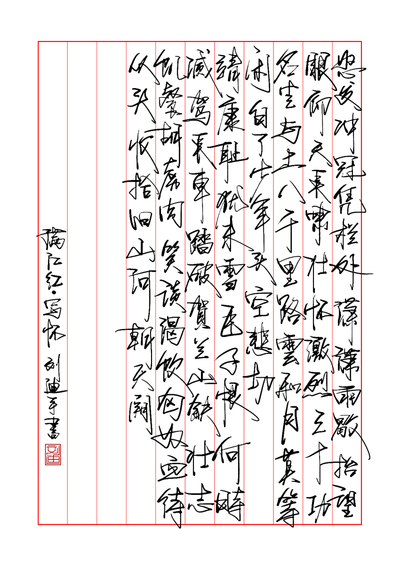 怒发冲冠凭栏处潇潇雨歇抬望
眼仰天长啸壮怀激烈三十功
名尘与土八千里路雲和月莫等
闲白了少年头空悲切
靖康耻犹未雪臣子恨何時
滅驾长車踏破賀兰山缺壮志
饥餐胡虏肉笑谈渴饮匈奴血待
从头收拾旧山河朝天阙
满江红·写怀 刘迪军書